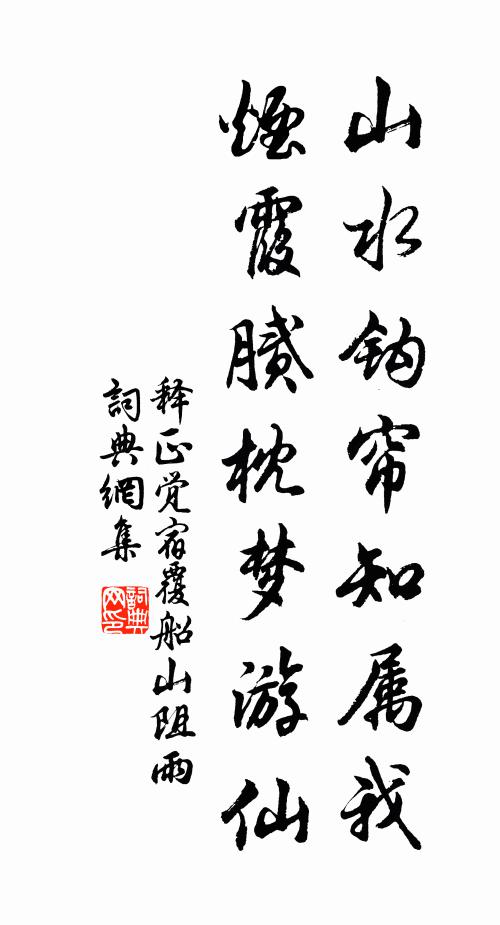 山水鈎帘知属我
煙霞膩枕梦游仙
释正觉宿覆船山阻雨
詞典網集
詞典
网印